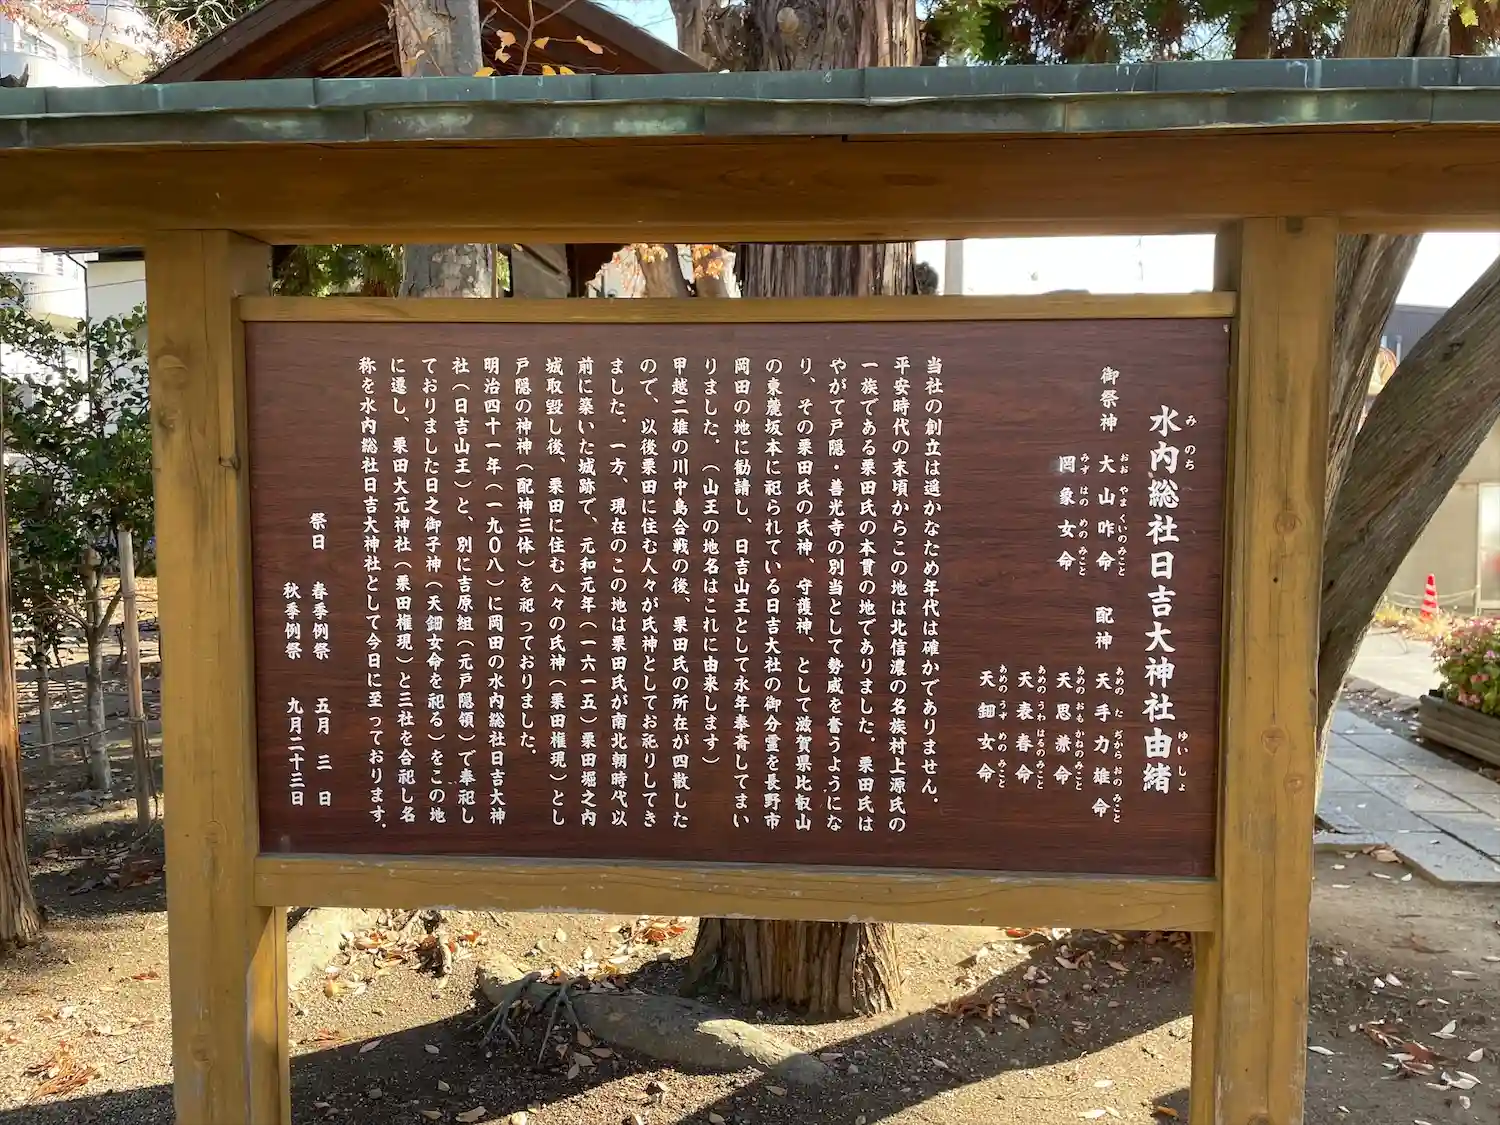 水内総社日吉大神社由緒
みのち
ゆいしょ
御祭神 大山咋命 配神 天手力雄命
おおやまくいのみこと
あめのたぢからおのみこと
罔象女命 天思兼命
みずはのめのみこと
あめのおもかねのみこと
天表春命
あめのうわはるのみこと
天鈿女命
あめのうずめのみこと
当社の創立は遥かなため年代は確かでありません。
平安時代の末頃からこの地は北信濃の名族村上源氏の
一族である栗田氏の本貫の地でありました。栗田氏は
やがて戸隠・善光寺の別当として勢威を奮うようにな
り、その栗田氏の氏神、守護神、として滋賀県比叡山
の東麓坂本に祀られている日吉大社の御分霊を長野市
岡田の地に勧請し、日吉山王として永年奉斎してまい
りました。（山王の地名はこれに由来します）
甲越二雄の川中島合戦の後、栗田氏の所在が四散した
ので、以後栗田に住む人々が氏神としてお祀りしてき
ました。一方、現在のこの地は栗田氏が南北朝時代以
前に築いた城跡で、元和元年（一六一五）栗田堀之内
城取毀し後、栗田に住む人々の氏神（栗田権現）とし
戸隠の神神（配神三体）を祀っておりました。
明治四十一年（一九〇八）に岡田の水内総社日吉大神
社（日吉山王）と、別に吉原組（元戸隠領）で奉祀し
ておりました日之御子神（天鈿女命を祀る）をこの地
に遷し、栗田大元神社（栗田権現）と三社を合祀し名
称を水内総社日吉大神社として今日に至っております。
祭日 春季例祭 五月三日
秋季例祭 九月二十三日